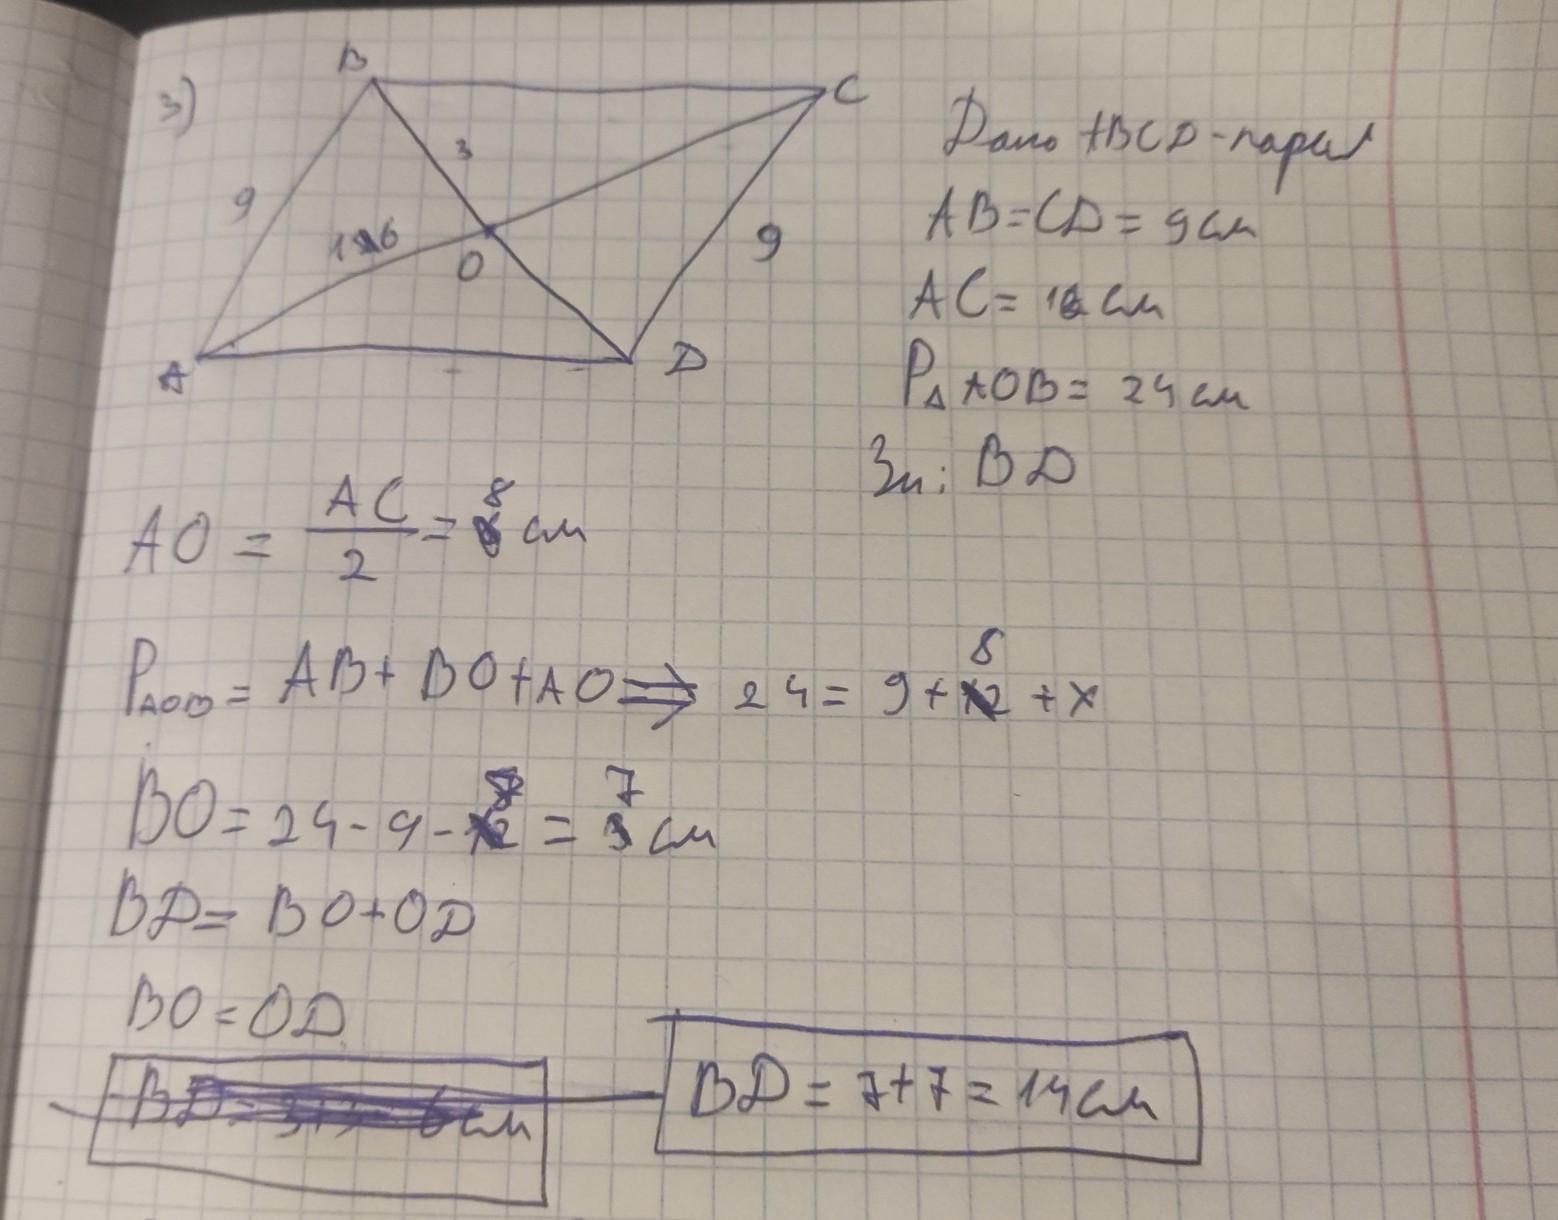 3)
B
C
3
9
16
O
9
A
D
Дано ABCD-парал
AB=CD= 9см
AC= 16 см
P△AOB= 24 см
Зн: BD
AO = AC/2 = 8 см
PAOB = AB + BO + AO ⟹ 24 = 9 + 8 + x
BO = 24 - 9 - 8 = 7 см
BD = BO + OD
BO = OD
BD = 3+3 = 6 см
BD = 7+7 = 14 см